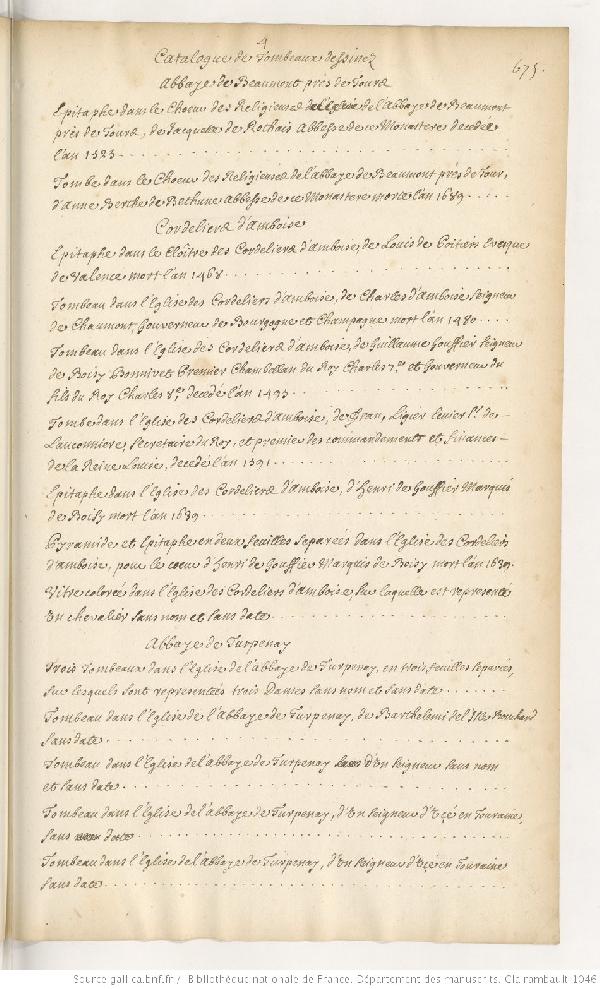 4
Catalogue de Tombeaux dessinez
675.
Abbaye de Beaumont près de Tours
Epitaphe dans le Choeur des Religieuses de l'Abbaye de Beaumont
près de Tours, de Jaquette de Rochais Abbesse de ce Monastere decedée
l'an 1523
Tombe dans le Choeur des Religieuses de l'abbaye de Beaumont près de Tour,
d'anne Berthe de Bethune abbesse de ce Monastere morte l'an 1689
Cordeliers d'amboise
Epitaphe dans le Cloître des Cordeliers d'amboise, de Louis de Poitiers Evesque
de Valence mort l'an 1468
Tombeau dans l'Eglise des Cordeliers d'amboise, de Charles d'amboise Seigneur
de Chaumont Gouverneur de Bourgogne et Champagne mort l'an 1480
Tombeau dans l'Eglise des Cordeliers d'amboise, de Guillaume Gouffier Seigneur
de Boisy Bonnivet Premier Chambellan du Roy Charles 7.e et Gouverneur du
fils du Roy Charles 8.e decedé l'an 1495
Tombe dans l'Eglise des Cordeliers d'amboise, de Jean, Ligier
Secretaire du Roy, et premier des commandements et finances
de la Reine Louise, decedé l'an 1591
Epitaphe dans l'Eglise des Cordeliers d'amboise, d'Henri de Gouffier Marquis
de Boisy mort l'an 1639
Pyramide et Epitaphe en deux feuilles separées dans l'Eglise des Cordeliers
d'amboise, pour le coeur d'Henri de Gouffier Marquis de Boisy mort l'an 1639.
Vitre colorée dans l'Eglise des Cordeliers d'amboise, sur laquelle est representé
un chevalier sans nom et sans date
Abbaye de Turpenay
Trois Tombeaux dans l'Eglise de l'abbaye de Turpenay, en trois feuilles separées,
sur lesquels sont representées trois Dames sans nom et sans date
Tombeau dans l'Eglise de l'Abbaye de Turpenay, de Bartholomi de l'Isle Bouchard
sans date
Tombeau dans l'Eglise de l'abbaye de Turpenay d'un Seigneur sans nom
et sans date
Tombeau dans l'Eglise de l'abbaye de Turpenay, d'un Seigneur d'Ucé en Touraine,
sans date
Tombeau dans l'Eglise de l'abbaye de Turpenay, d'un Seigneur d'Ucé en Touraine
sans date
Source gallica.bnf.fr / Bibliothèque nationale de France. Département des manuscrits. Clairambault 1046